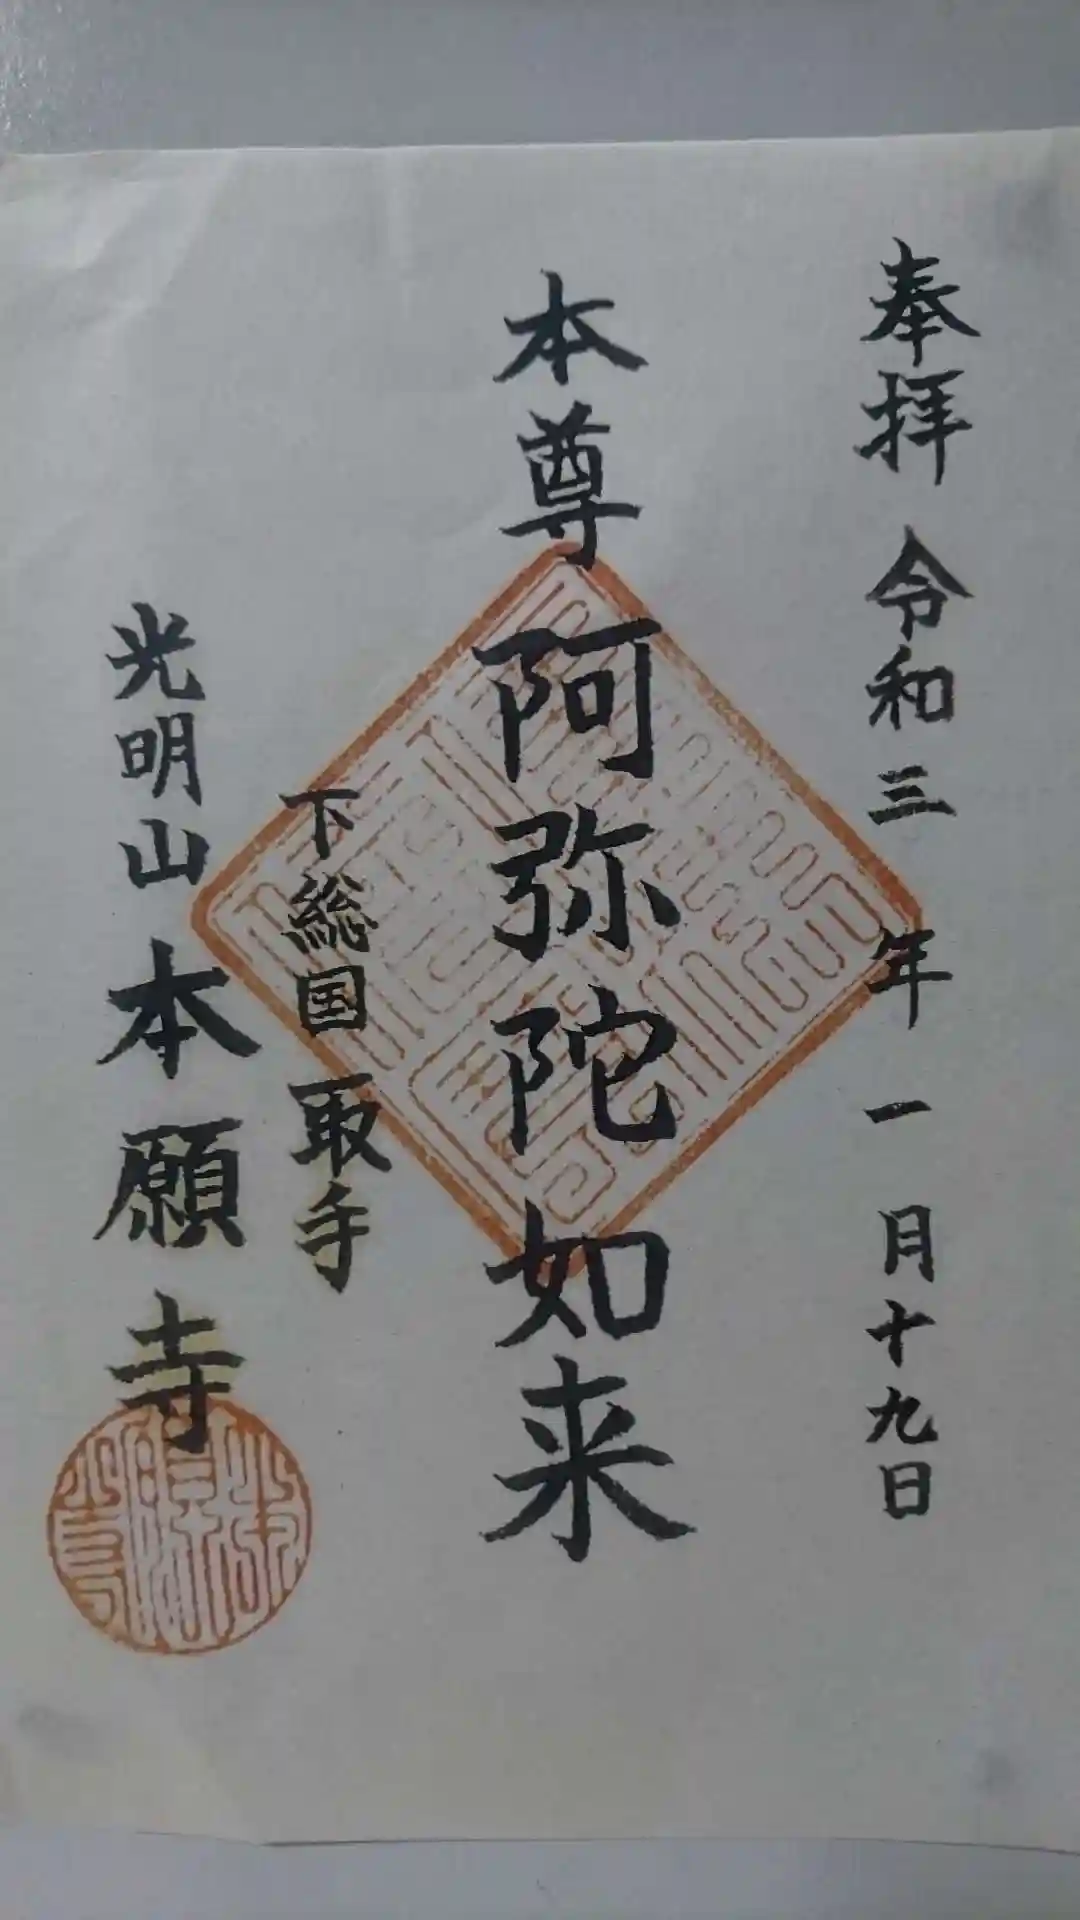 奉拝 令和三年一月十九日
本尊 阿弥陀如来
下総国 取手
光明山 本願寺